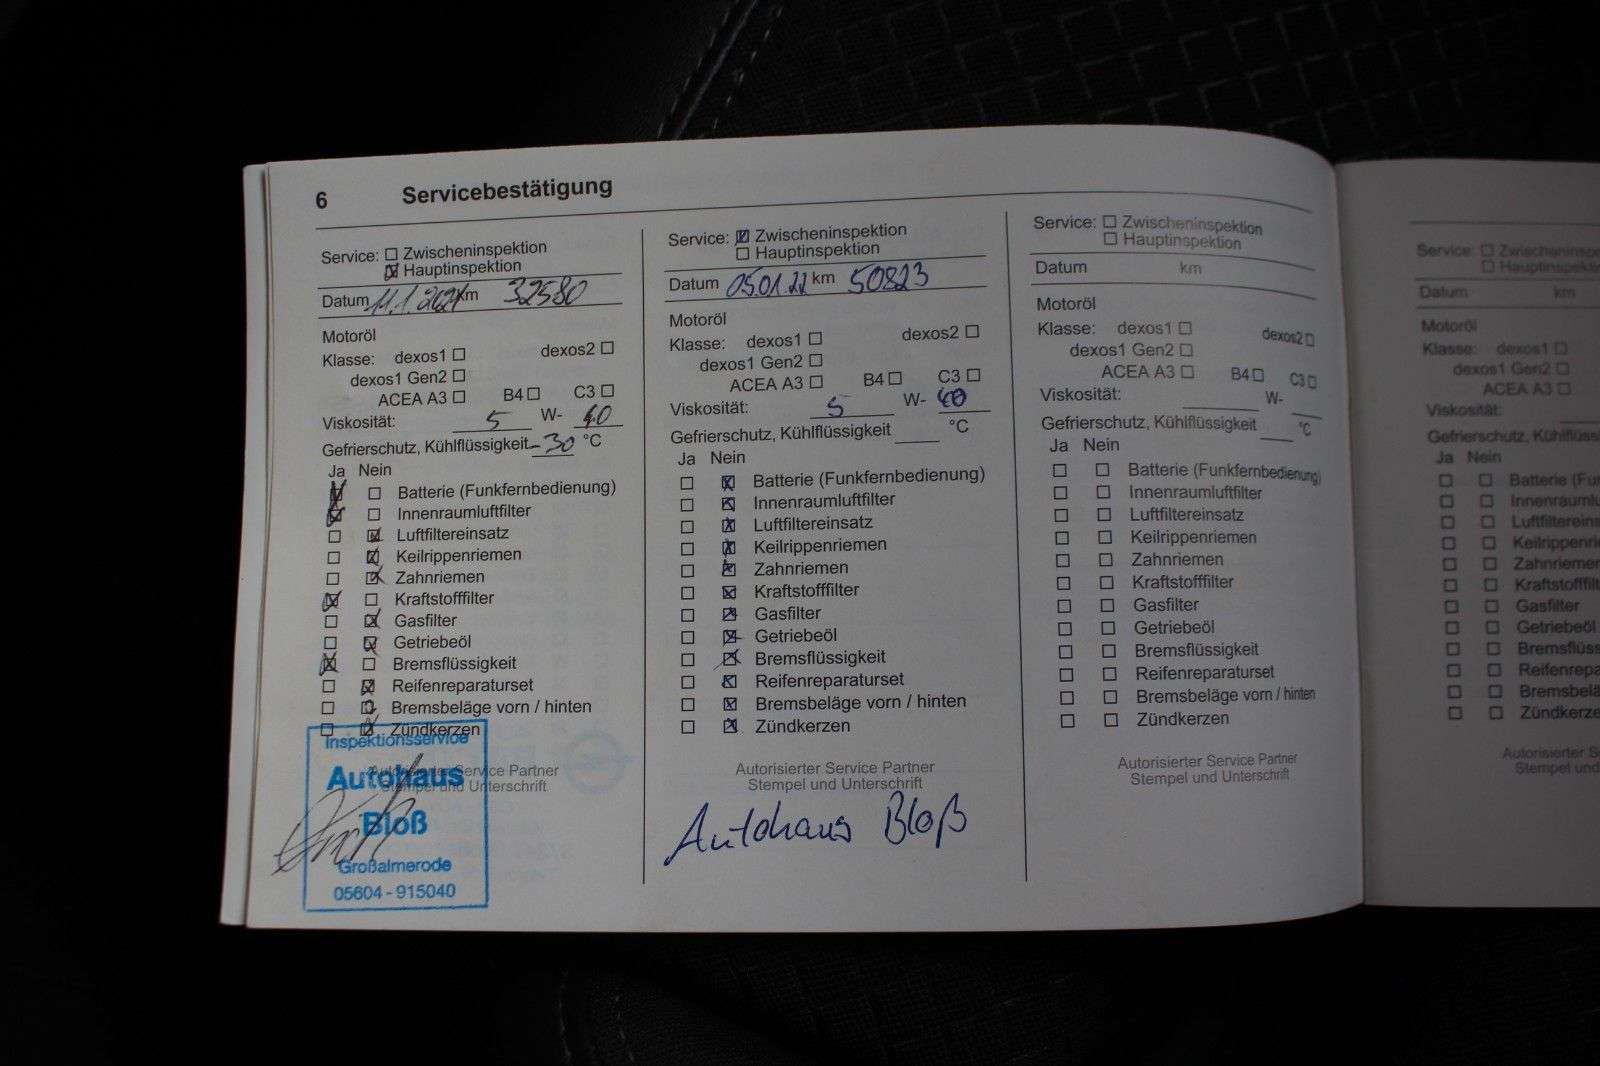 6 Servicebestätigung
Service: ☐ Zwischeninspektion
☒ Hauptinspektion
Datum 11.1.2021 km 32580
Motoröl
Klasse: dexos1 ☐ dexos2 ☐
dexos1 Gen2 ☐
ACEA A3 ☐ B4 ☐ C3 ☐
Viskosität: 5 W- 40
Gefrierschutz, Kühlflüssigkeit -30 °C
Ja Nein
☒ ☐ Batterie (Funkfernbedienung)
☒ ☐ Innenraumluftfilter
☐ ☒ Luftfiltereinsatz
☐ ☒ Keilrippenriemen
☐ ☒ Zahnriemen
☒ ☐ Kraftstofffilter
☐ ☒ Gasfilter
☐ ☒ Getriebeöl
☒ ☐ Bremsflüssigkeit
☐ ☒ Reifenreparaturset
☐ ☒ Bremsbeläge vorn / hinten
☐ ☒ Zündkerzen
Autorisierter Service Partner
Stempel und Unterschrift
Inspektionsservice
Autohaus
Bloß
Großalmerode
05604 - 915040
Service: ☒ Zwischeninspektion
☐ Hauptinspektion
Datum 05.01.22 km 50823
Motoröl
Klasse: dexos1 ☐ dexos2 ☐
dexos1 Gen2 ☐
ACEA A3 ☐ B4 ☐ C3 ☐
Viskosität: 5 W- 40
Gefrierschutz, Kühlflüssigkeit °C
Ja Nein
☐ ☒ Batterie (Funkfernbedienung)
☐ ☒ Innenraumluftfilter
☐ ☒ Luftfiltereinsatz
☐ ☒ Keilrippenriemen
☐ ☒ Zahnriemen
☐ ☒ Kraftstofffilter
☐ ☒ Gasfilter
☐ ☒ Getriebeöl
☐ ☒ Bremsflüssigkeit
☐ ☒ Reifenreparaturset
☐ ☒ Bremsbeläge vorn / hinten
☐ ☒ Zündkerzen
Autorisierter Service Partner
Stempel und Unterschrift
Autohaus Bloß
Service: ☐ Zwischeninspektion
☐ Hauptinspektion
Datum km
Motoröl
Klasse: dexos1 ☐ dexos2 ☐
dexos1 Gen2 ☐
ACEA A3 ☐ B4 ☐ C3 ☐
Viskosität: W-
Gefrierschutz, Kühlflüssigkeit °C
Ja Nein
☐ ☐ Batterie (Funkfernbedienung)
☐ ☐ Innenraumluftfilter
☐ ☐ Luftfiltereinsatz
☐ ☐ Keilrippenriemen
☐ ☐ Zahnriemen
☐ ☐ Kraftstofffilter
☐ ☐ Gasfilter
☐ ☐ Getriebeöl
☐ ☐ Bremsflüssigkeit
☐ ☐ Reifenreparaturset
☐ ☐ Bremsbeläge vorn / hinten
☐ ☐ Zündkerzen
Autorisierter Service Partner
Stempel und Unterschrift
Service: ☐ Zwischeninspe
☐ Hauptinspekt
Datum km
Motoröl
Klasse: dexos1 ☐
dexos1 Gen2 ☐
ACEA A3 ☐
Viskosität:
Gefrierschutz, Kühlflüss
Ja Nein
☐ ☐ Batterie (Fu
☐ ☐ Innenraumlu
☐ ☐ Luftfiltereins
☐ ☐ Keilrippenri
☐ ☐ Zahnriemen
☐ ☐ Kraftstofffilt
☐ ☐ Gasfilter
☐ ☐ Getriebeöl
☐ ☐ Bremsflüss
☐ ☐ Reifenrepa
☐ ☐ Bremsbelä
☐ ☐ Zündkerze
Autorisierter Se
Stempel und